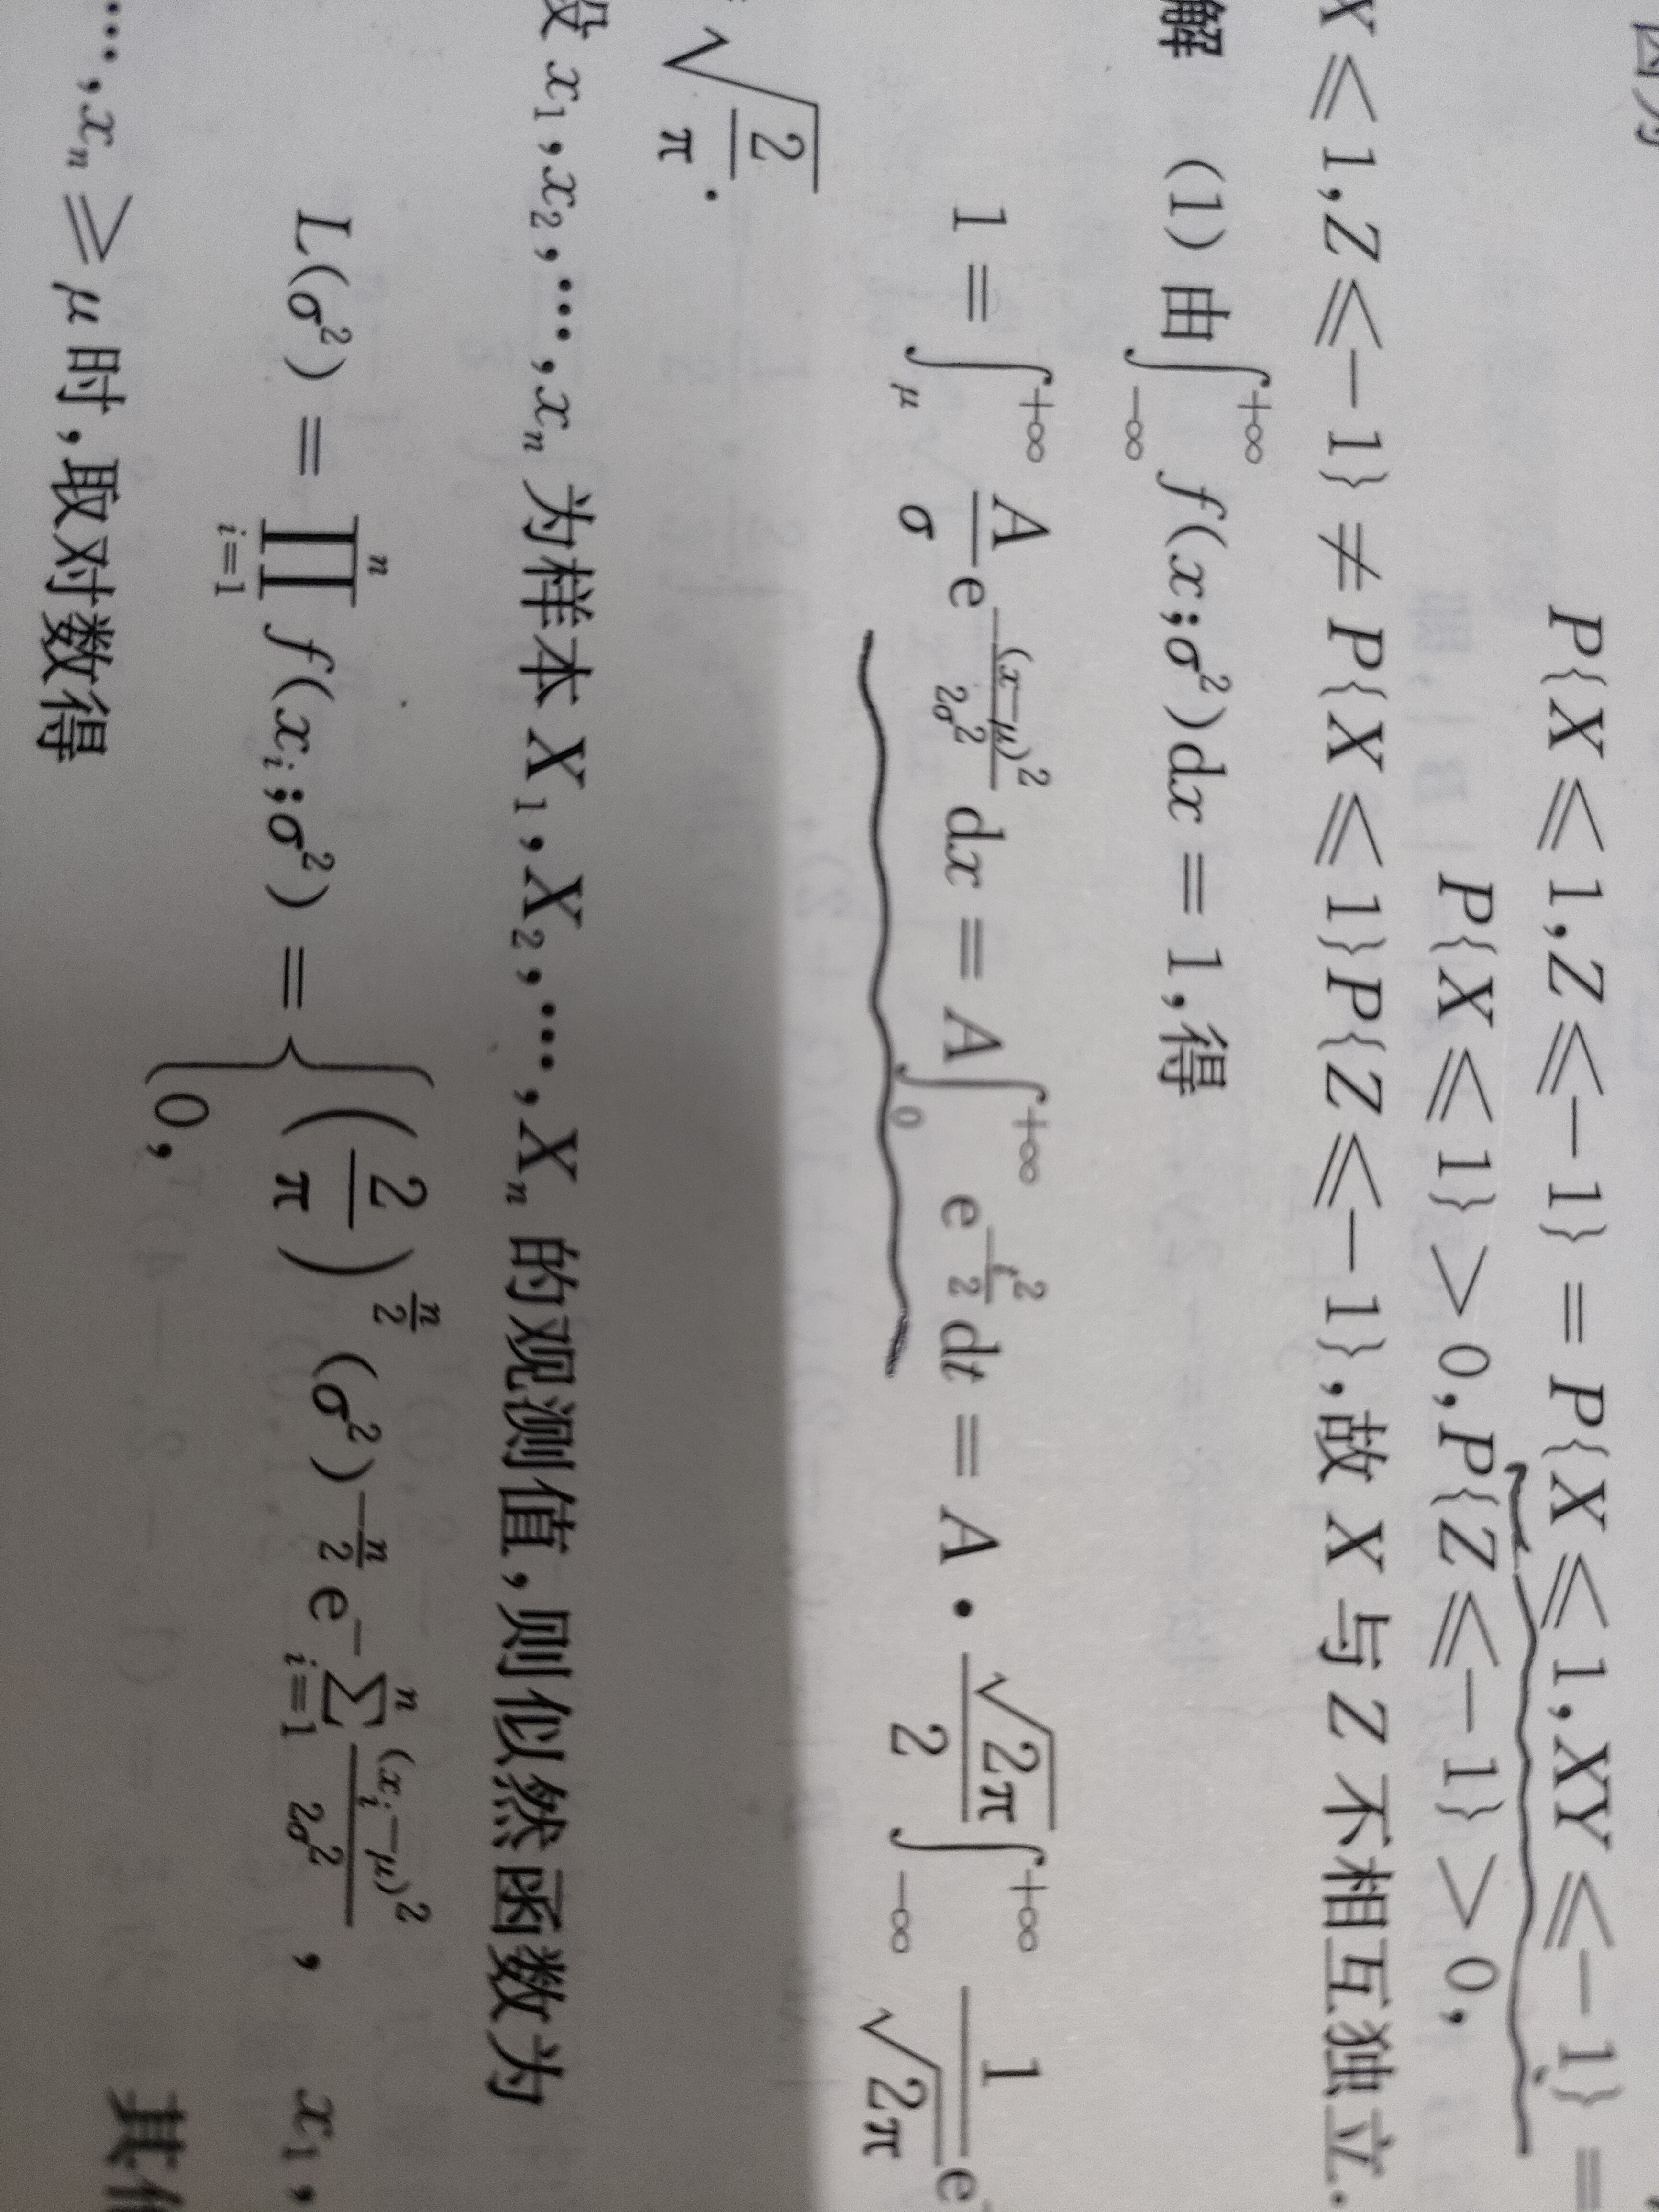 P{X ⩽ 1,Z ⩽−1} = P{X ⩽ 1,XY ⩽−1} =
P{X ⩽ 1} > 0,P{Z ⩽−1} > 0,
X ⩽ 1,Z ⩽−1} ≠ P{X ⩽ 1}P{Z ⩽−1},故 X 与 Z 不相互独立.
解 (1) 由∫_{−∞}^{+∞} f(x;σ²)dx = 1,得
1 = ∫_{μ}^{+∞} \frac{A}{σ}e^{−\frac{(x−μ)²}{2σ²}}dx = A∫_{0}^{+∞} e^{−\frac{t²}{2}}dt = A · \frac{\sqrt{2π}}{2}∫_{−∞}^{+∞} \frac{1}{\sqrt{2π}}e^{−
\sqrt{\frac{2}{π}}.
设 x₁,x₂,⋯,xₙ 为样本 X₁,X₂,⋯,Xₙ 的观测值,则似然函数为
L(σ²) = ∏_{i=1}^{n} f(x_i;σ²) = { (\frac{2}{π})^{\frac{n}{2}} (σ²)^{−\frac{n}{2}} e^{−∑_{i=1}^{n}\frac{(x_i−μ)²}{2σ²}}, x₁,
0,
⋯,xₙ ⩾ μ 时,取对数得